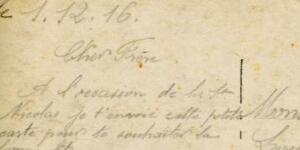 le 1.12.16.
Cher Frère
A l'occasion de la St
Nicolas je t'envoie cette petite
carte pour te souhaiter la